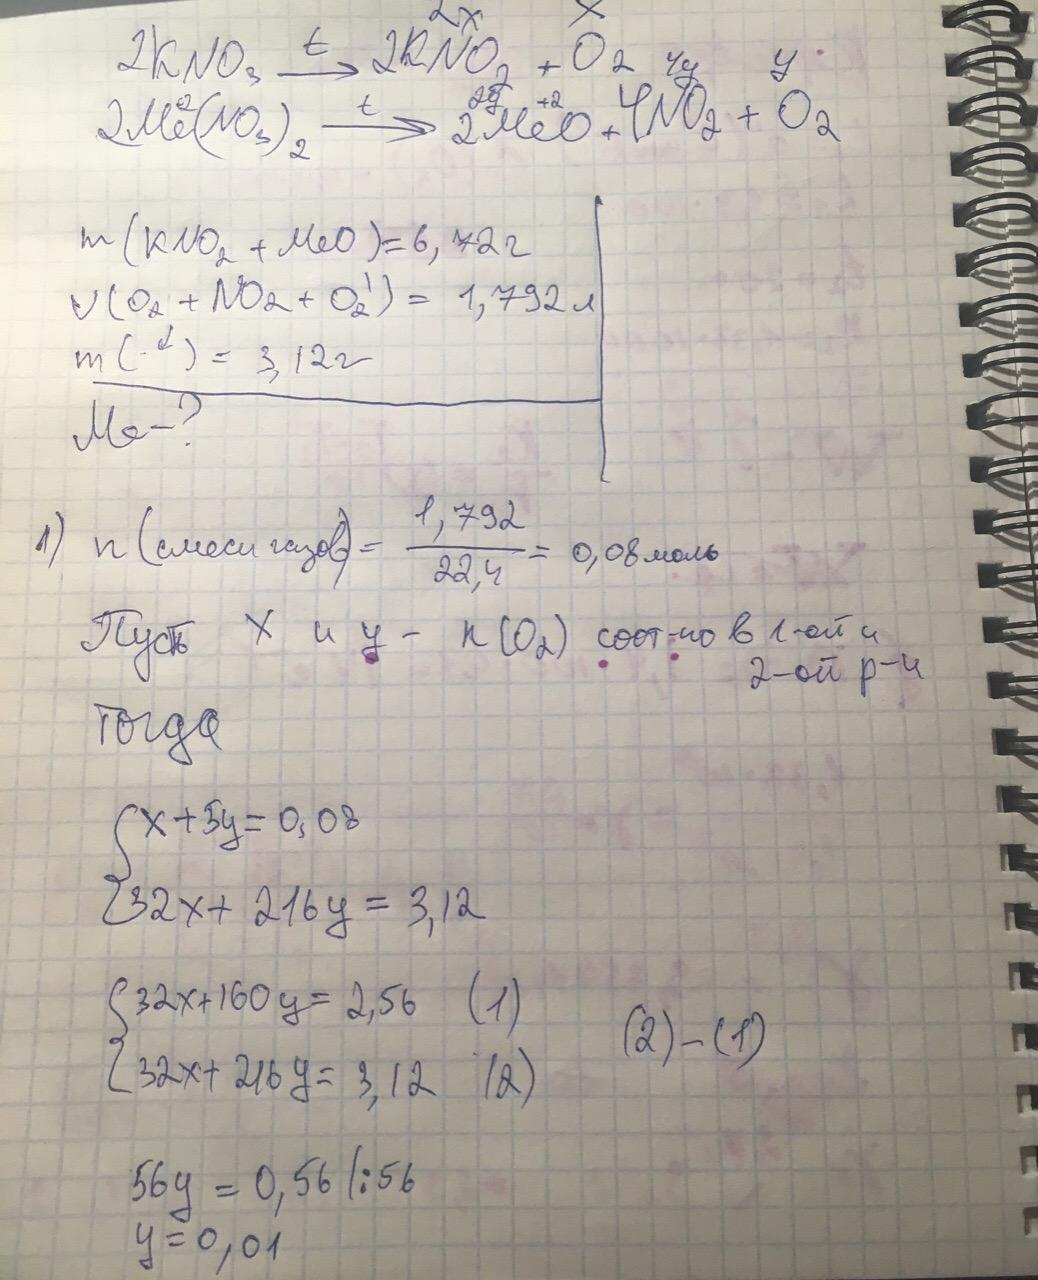 2x x
2KNO₃ t→ 2KNO₂ + O₂
2y +2 4y y
2Me(NO₃)₂ t→ 2MeO + 4NO₂ + O₂
m(KNO₂ + MeO) = 6,72г
V(O₂ + NO₂ + O₂') = 1,792 л
m( ) = 3,12г
Me - ?
1) n (смеси газов) = 1,792 / 22,4 = 0,08 моль
Пусть x и y - n(O₂) соот-но в 1-ой и
2-ой р-и
Тогда
{ x + 5y = 0,08
32x + 216y = 3,12
{ 32x + 160y = 2,56 (1)
32x + 216y = 3,12 (2) (2) - (1)
56y = 0,56 |:56
y = 0,01